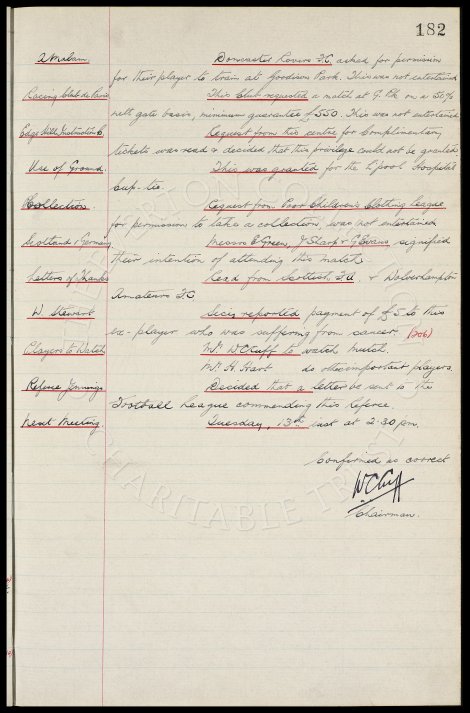 182
Doncaster Rovers F.C. asked for permission
for their player to train at Goodison Park. This was not entertained
Racing Club de Paris This Club requested a match at G. Pk on a 50%
nett gate basis, minimum guarantee of £550. This was not entertained
Edge Hill Instruction C. Request from this centre for Complimentary
tickets was read & decided that this privilege could not be granted
Use of Ground. This was granted for the L'pool Hospital
Cup-tie.
Collection. Request from Poor Children's Clothing League
for permission to take a collection was not entertained
Scotland v Germany Messrs E Green, J Sharp & G Evans signified
their intention of attending this match.
Letters of Thanks Read from Scottish F.A. & Wolverhampton
Amateurs F.C
W Stewart Secy reported payment of £5 to this
ex-player who was suffering from cancer. (206)
Players to Watch Mr. W C Cuff to watch
Mr. H. Hart do important players
Referee Jennings Decided that a letter be sent to the
Football League commending this Referee.
Next Meeting Tuesday, 13th inst at 2-30 pm.
Confirmed as correct
W C Cuff
Chairman.
ELECTION
CHARITABLE TRUST